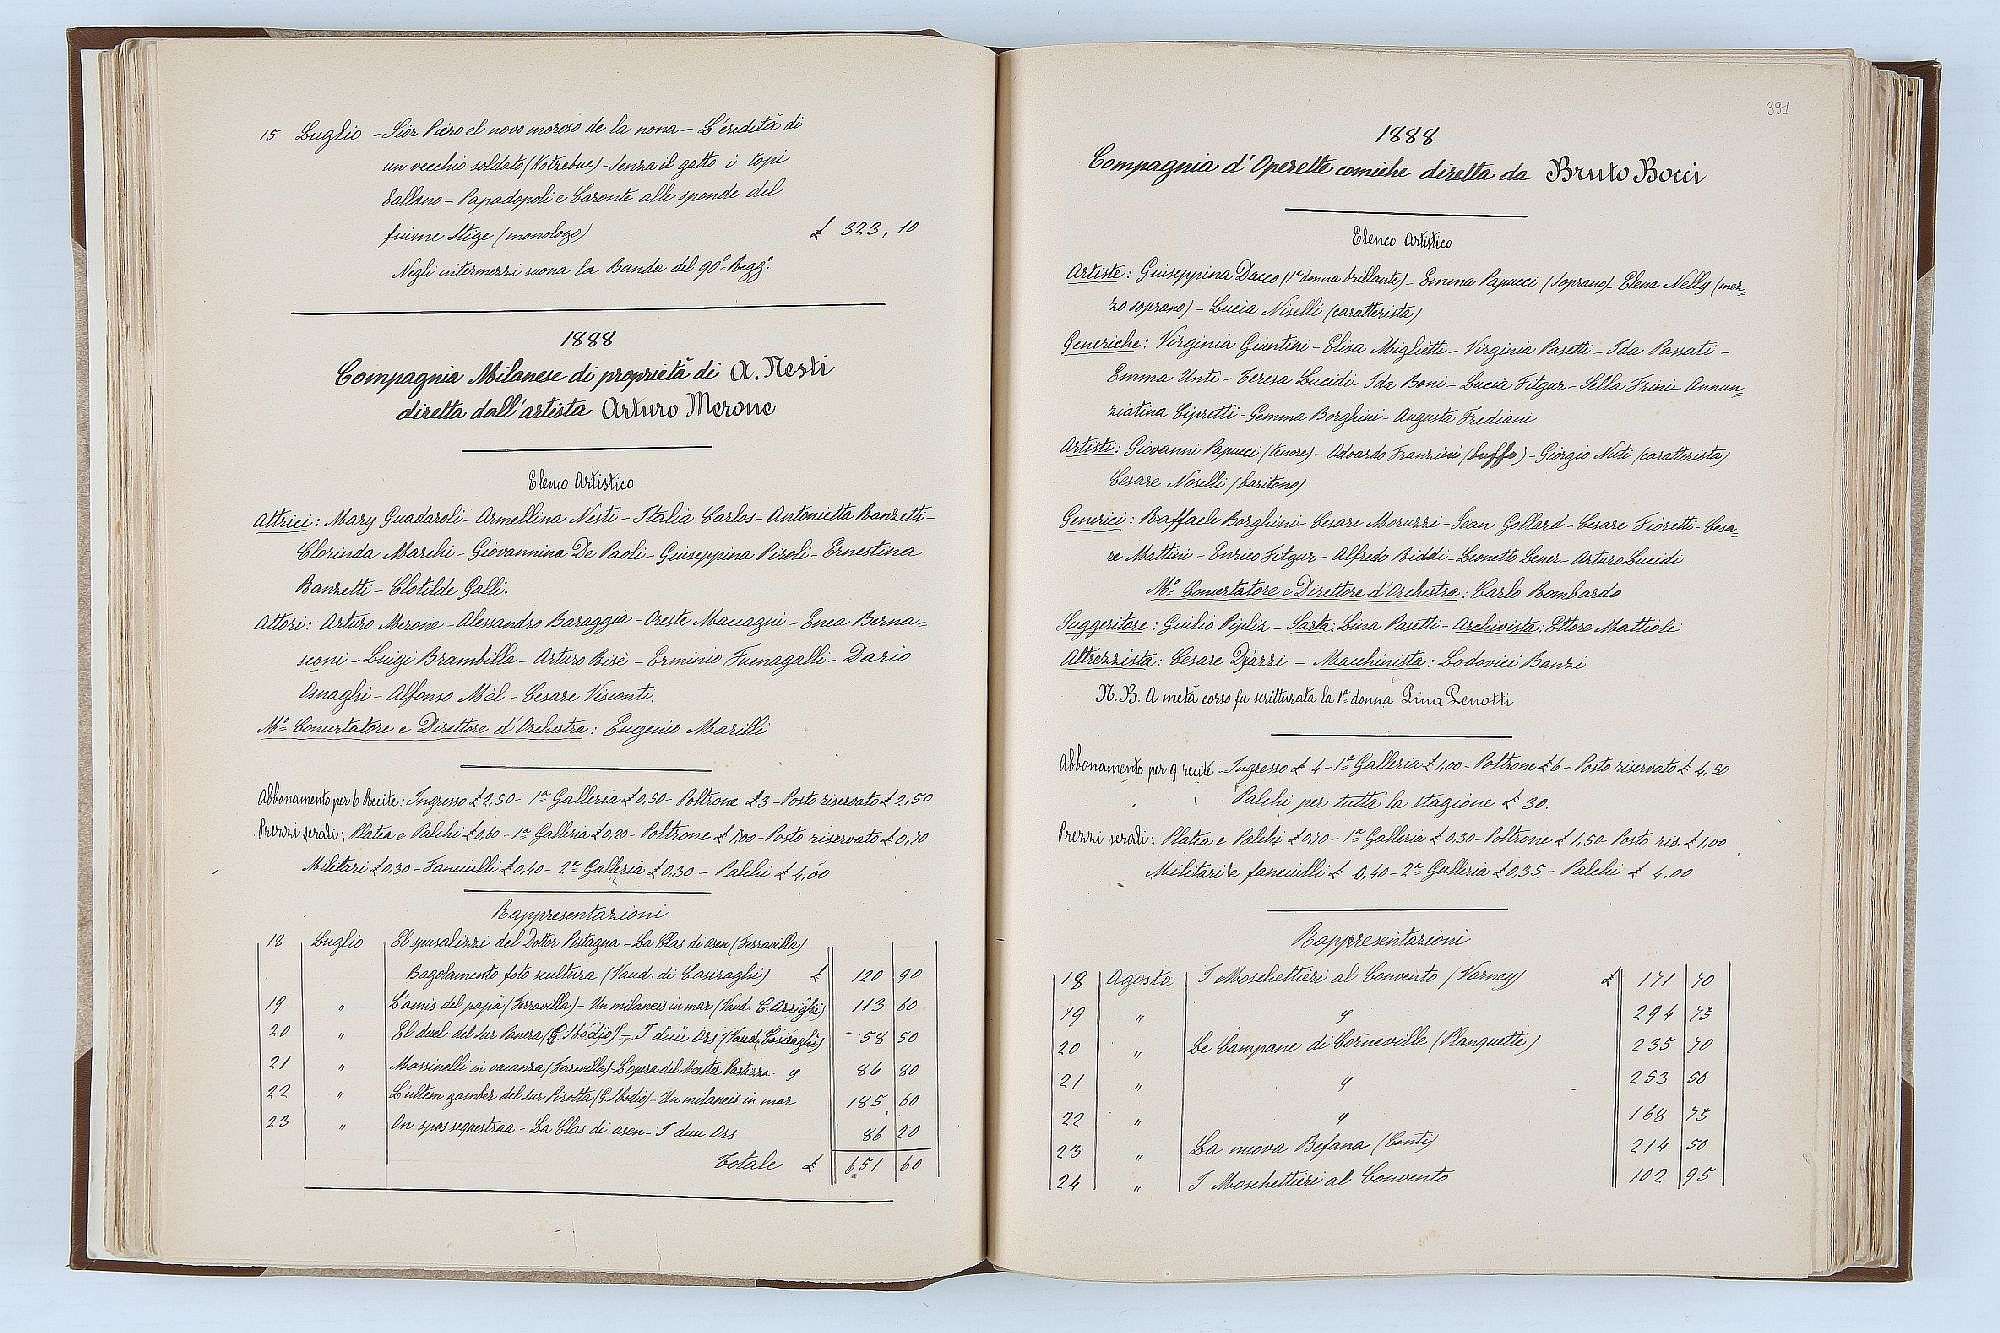 15 Luglio - Sior Piero el novo moroso de la nona - L'eredità di
un vecchio soldato (Kotzebue) - Senza il gatto i topi
ballano - Papadopoli e Caronte alle sponde del
fiume Stige (monologo) £ 323,10
Negli intermezzi suona la Banda del 90° Regg°.
1888
Compagnia Milanese di proprietà di A. Nesti
diretta dall'artista Arturo Merone
Elenco Artistico
Attrici: Mary Guadaroli - Armellina Nesti - Italia Carlos - Antonietta Banzetti -
Clorinda Marchi - Giovannina De Paoli - Giuseppina Piroli - Ernestina
Banzetti - Clotilde Galli.
Attori: Arturo Merone - Alessandro Baraggia - Oreste Maccagni - Enea Berna=
sconi - Luigi Brambilla - Arturo Bisè - Erminio Fumagalli - Dario
Osnaghi - Alfonso Mel - Cesare Visconti.
M° Concertatore e Direttore d'Orchestra: Eugenio Marilli
Abbonamento per 6 Recite: Ingresso £ 2,50 - 1ª Galleria £ 0,50 - Poltrone £ 3 - Posto riservato £ 2,50
Prezzi serali: Platea e Palchi £ 0,60 - 1ª Galleria £ 0,20 - Poltrone £ 1,00 - Posto riservato £ 0,70
Militari £ 0,30 - Fanciulli £ 0,40 - 2ª Galleria £ 0,30 - Palchi £ 4,00
Rappresentazioni
18 Luglio El sposalizzi del Dottor Pistagna - La Class di asen (Ferravilla)
Bagolamento foto scultura (Vaud. di Casiraghi) £ 120 90
19 " L'amis del papà (Ferravilla) - Un milaneis in mar (Vaud. C. Arrighi) 113 60
20 " El duel del sur Panera (G. Sbodio) - I duu Ors (Vaud. Casiraghi) 58 50
21 " Massinelli in vacanza (Ferravilla) - L'opera del Maester Pastizza " 86 80
22 " L'ultem zamber del sur Pirotta (G. Sbodio) - Un milaneis in mar 185 60
23 " On spos sequestraa - La Class di asen - I duu Ors 86 20
Totale £ 651 60
391
1888
Compagnia d'Operette comiche diretta da Bruto Bocci
Elenco Artistico
Artiste: Giuseppina Dacco (1ª donna brillante) - Emma Papucci (Soprano) Elena Nelly (mez=
zo soprano) - Lucia Niselli (caratterista)
Generiche: Virginia Giuntini - Elisa Miglietti - Virginia Pasetti - Ida Passati -
Emma Unti - Teresa Lucidi Ida Boni - Lucia Fitzur - Stella Frini Annun=
ziatina Cipretti - Gemma Borghini - Augusta Frediani
Artisti: Giovanni Papucci (tenore) - Odoardo Franzini (buffo) - Giorgio Neti (caratterista)
Cesare Noselli (baritono)
Generici: Raffaele Borghini - Cesare Moruzzi - Jean Gollard - Cesare Fioretti - Cesa=
re Mattini - Enrico Fitzur - Alfredo Biddi - Lionetto Lener - Arturo Lucidi
M° Concertatore e Direttore d'Orchestra: Karlo Bombardo
Suggeritore: Guilio Pigliz - Sarta: Lina Pasetti - Archivista: Ettore Mattioli
Attrezzista: Cesare Djazzi - Macchinista: Lodovici Banzi
N.B. A metà corso fu scritturata la 1ª donna Lina Zenotti
Abbonamento per 9 recite - Ingresso £ 4 - 1ª Galleria £ 1,00 - Poltrone £ 6 - Posto riservato £ 4,50
" " Palchi per tutta la stagione £ 30.
Prezzi serali: Platea e Palchi £ 0,70 - 1ª Galleria £ 0,30 - Poltrone £ 1,50 Posto ris. £ 1,00
Militari e fanciulli £ 0,40 - 2ª Galleria £ 0,35 - Palchi £ 4.00
Rappresentazioni
18 Agosto I Moschettieri al Convento (Varney) £ 171 70
19 " " 294 75
20 " Le Campane di Corneville (Planquette) 235 70
21 " " 253 50
22 " " 168 75
23 " La nuova Befana (Conti) 214 50
24 " I Moschettieri al Convento 102 95